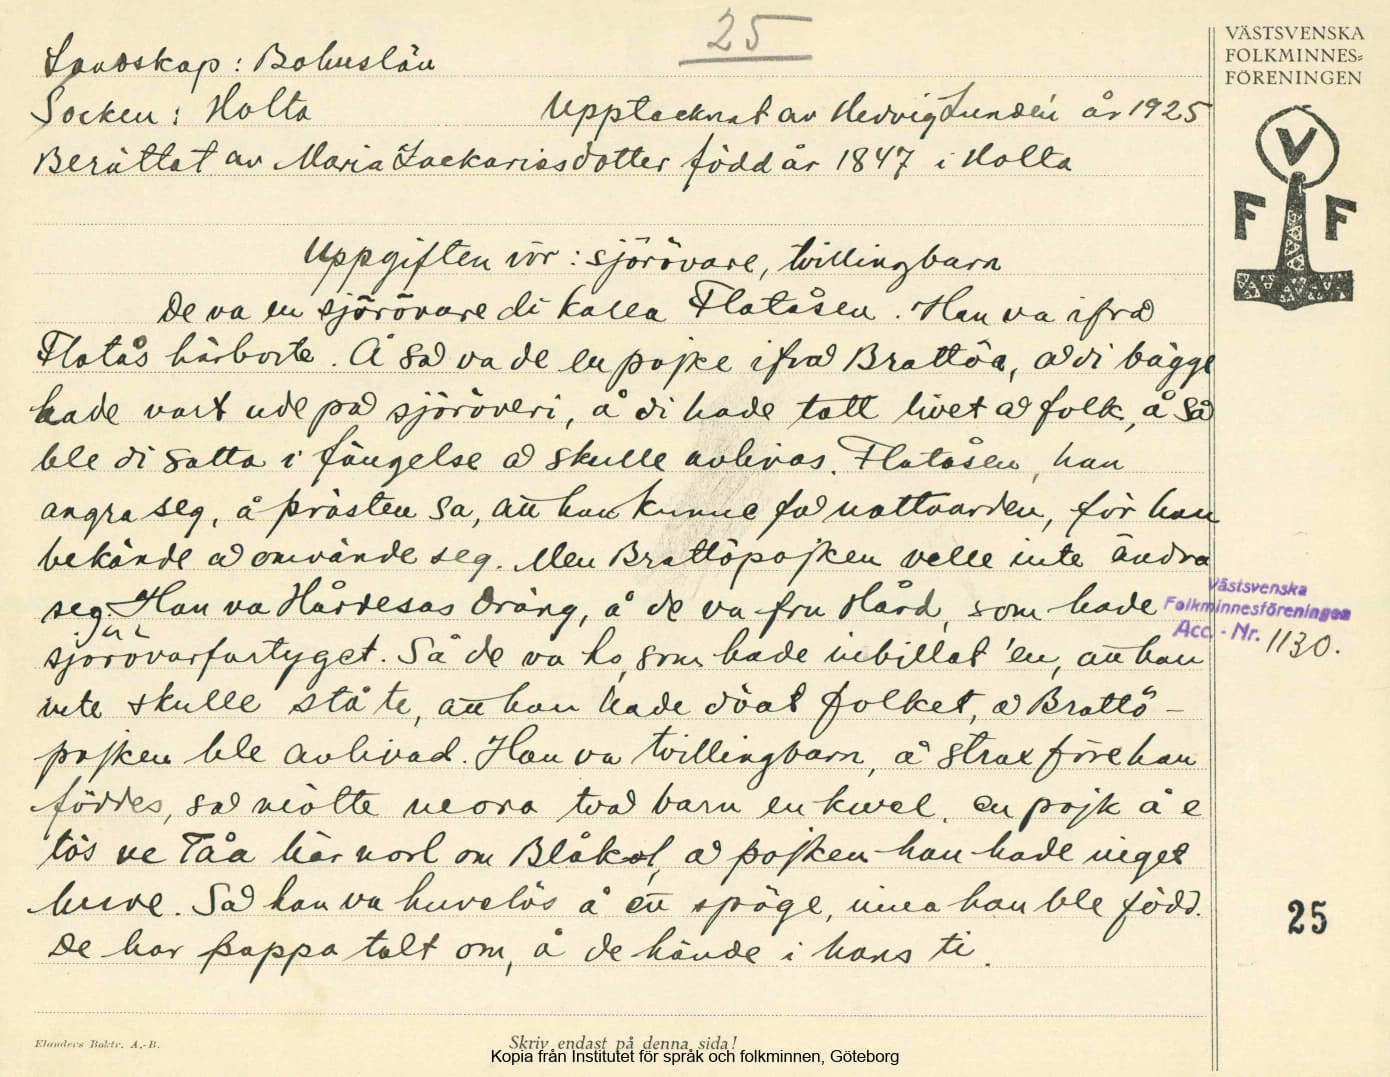 25
VÄSTSVENSKA
FOLKMINNES=
FÖRENINGEN
V
F F
Landskap: Bohuslän
Socken: Holta Upptecknat av Hedvig Lundén år 1925
Berättat av Maria Zackariasdotter född år 1847 i Holta
Uppgiften rör: sjörövare, tvillingbarn
De va en sjörövare di kalla Flatåsen. Han va ifrå
Flatås härborte. Å så va de en pojke ifrå Brattöa, å di bägge
hade vart ude på sjöröveri, å di hade tatt livet å folk, å så
ble di satta i fängelse å skulle avlivas. Flatåsen, han
angra seg, å prästen sa, att han kunne få nattvarden, för han
bekände å omvände seg. Men Brattöpojken velle inte ändra
seg. Han va Hårdesas dräng, å de va fru Hård, som hade
sjörövarfartyget. Så de va ho, som hade inbillat 'en, att han
inte skulle stå te, att han hade döat folket, å Brattö-
pojken ble avlivad. Han va tvillingbarn, å strax före han
föddes, så mötte mora två barn en kwel, en pojk å e
tös ve Tåa här norl om Blåkol, å pojken han hade inget
huve. Så han va huvelös å ett spöge, inna han ble född.
De har pappa talt om, å de hände i hans ti.
Västsvenska
Folkminnesföreningen
Acc.-Nr. 1130.
25
Elanders Boktr. A.-B.
Skriv endast på denna sida!
Kopia från Institutet för språk och folkminnen, Göteborg